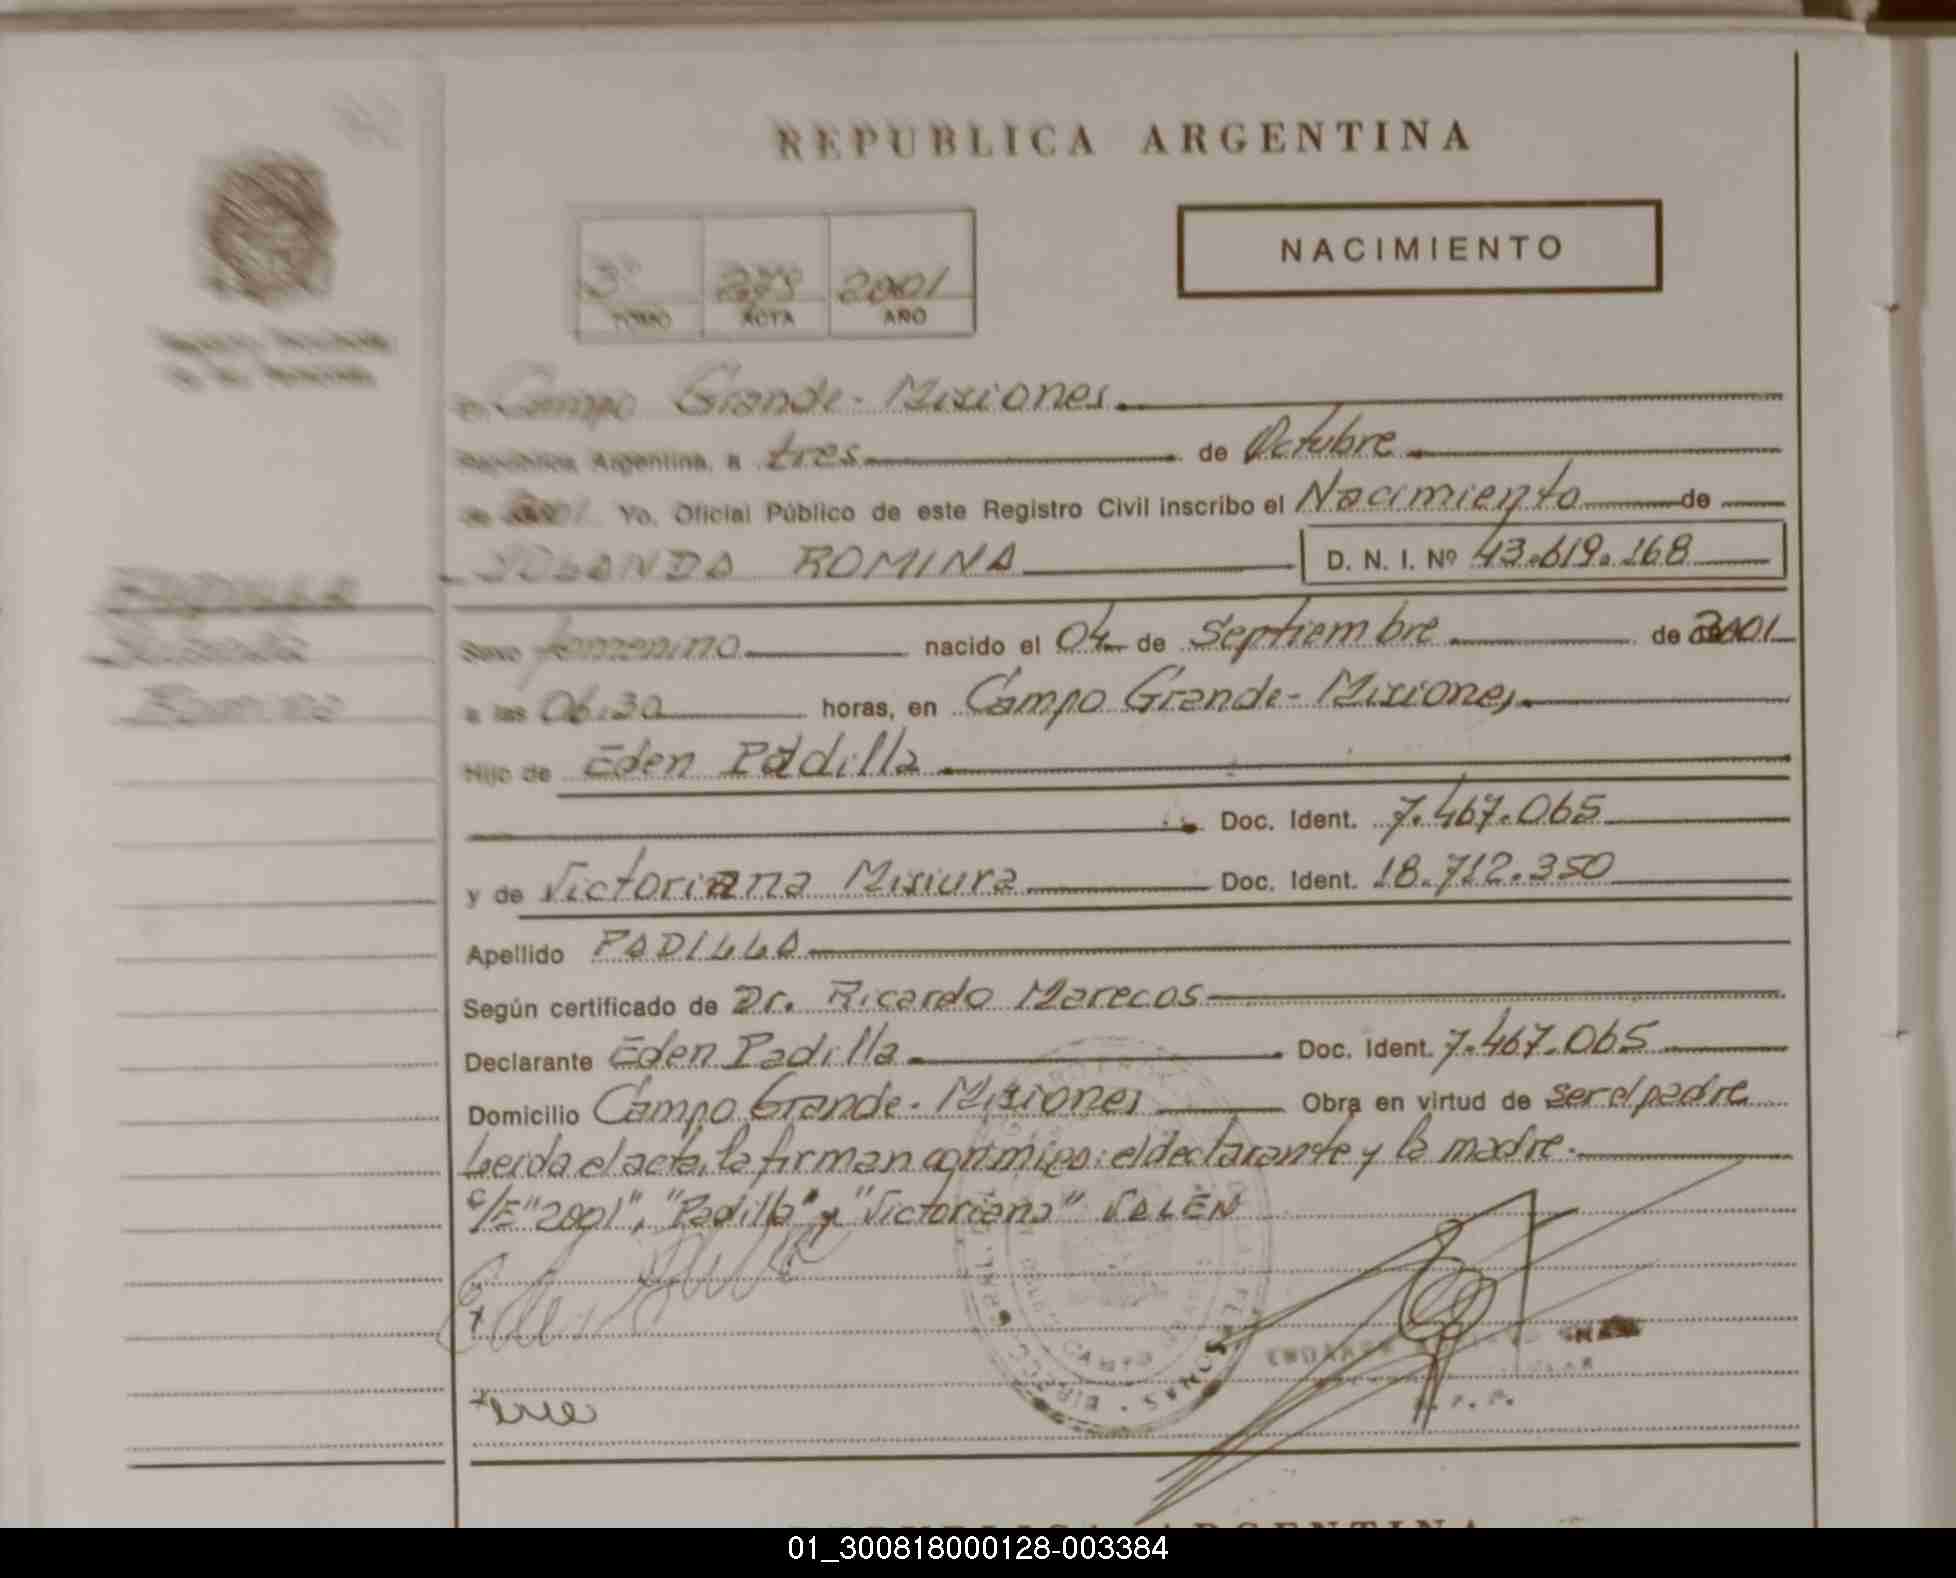 REPUBLICA ARGENTINA
NACIMIENTO
3º 2001
TOMO ACTA AÑO
en Campo Grande - Misiones
República Argentina, a tres de Octubre
de 2001 Yo, Oficial Público de este Registro Civil inscribo el Nacimiento de
YOLANDA ROMINA D. N. I. Nº 43.619.168
PADILLA
Yolanda
Romina
Sexo femenino nacido el 04 de Septiembre de 2001
a las 06:30 horas, en Campo Grande - Misiones
Hijo de Eden Padilla
Doc. Ident. 7.467.065
y de Victoriana Misiura Doc. Ident. 18.712.350
Apellido PADILLA
Según certificado de Dr. Ricardo Marecos
Declarante Eden Padilla Doc. Ident. 7.467.065
Domicilio Campo Grande - Misiones Obra en virtud de ser el padre
Leida el acta, la firman conmigo: el declarante y la madre.
C/E "2001", "Padilla" y "Victoriana" VALEN
REPUBLICA ARGENTINA
01_300818000128-003384